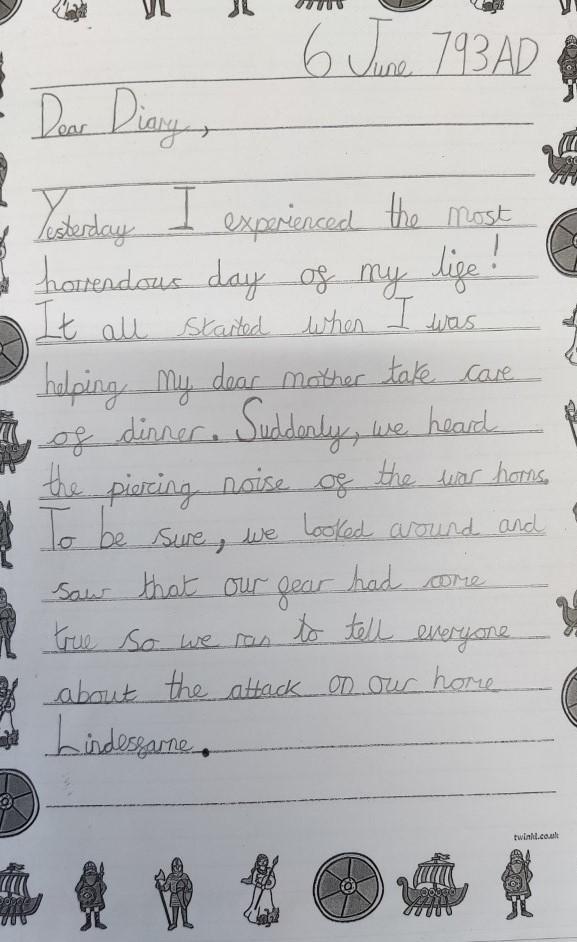 6 June 793AD
Dear Diary,
Yesterday I experienced the most
horrendous day of my life!
It all started when I was
helping my dear mother take care
of dinner. Suddenly, we heard
the piercing noise of the war horns.
To be sure, we looked around and
saw that our fear had come
true so we ran to tell everyone
about the attack on our home
Lindesfarne.
twinkl.co.uk